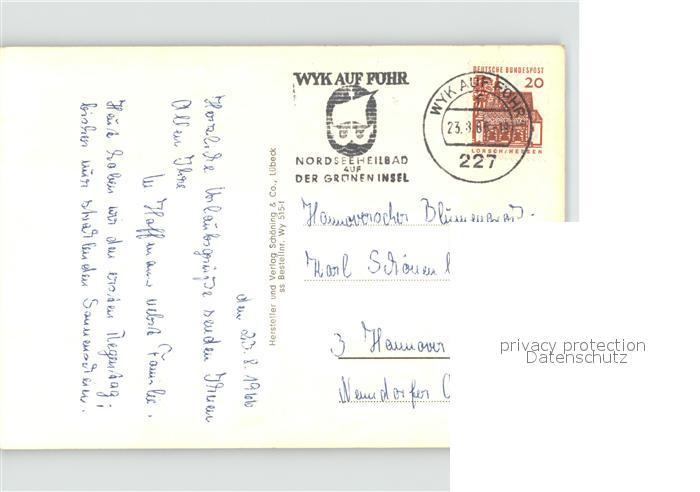 den 23.8.1966
Herzliche Urlaubsgrüße senden Ihnen
Allen Ihre
Hoffmann nebst Familie.
Heute haben wir den ersten Regentag;
bisher nur strahlenden Sonnenschein.
Hersteller und Verlag Schöning & Co., Lübeck
ss Bestellnr. Wy 515-f
WYK AUF FÖHR
NORDSEEHEILBAD
AUF
DER GRÜNEN INSEL
WYK AUF FÖHR
23.8.
227
DEUTSCHE BUNDESPOST
20
LORSCH/HESSEN
Hannoverscher
Karl
3 Hannover
Nenndorfer
privacy protection
Datenschutz